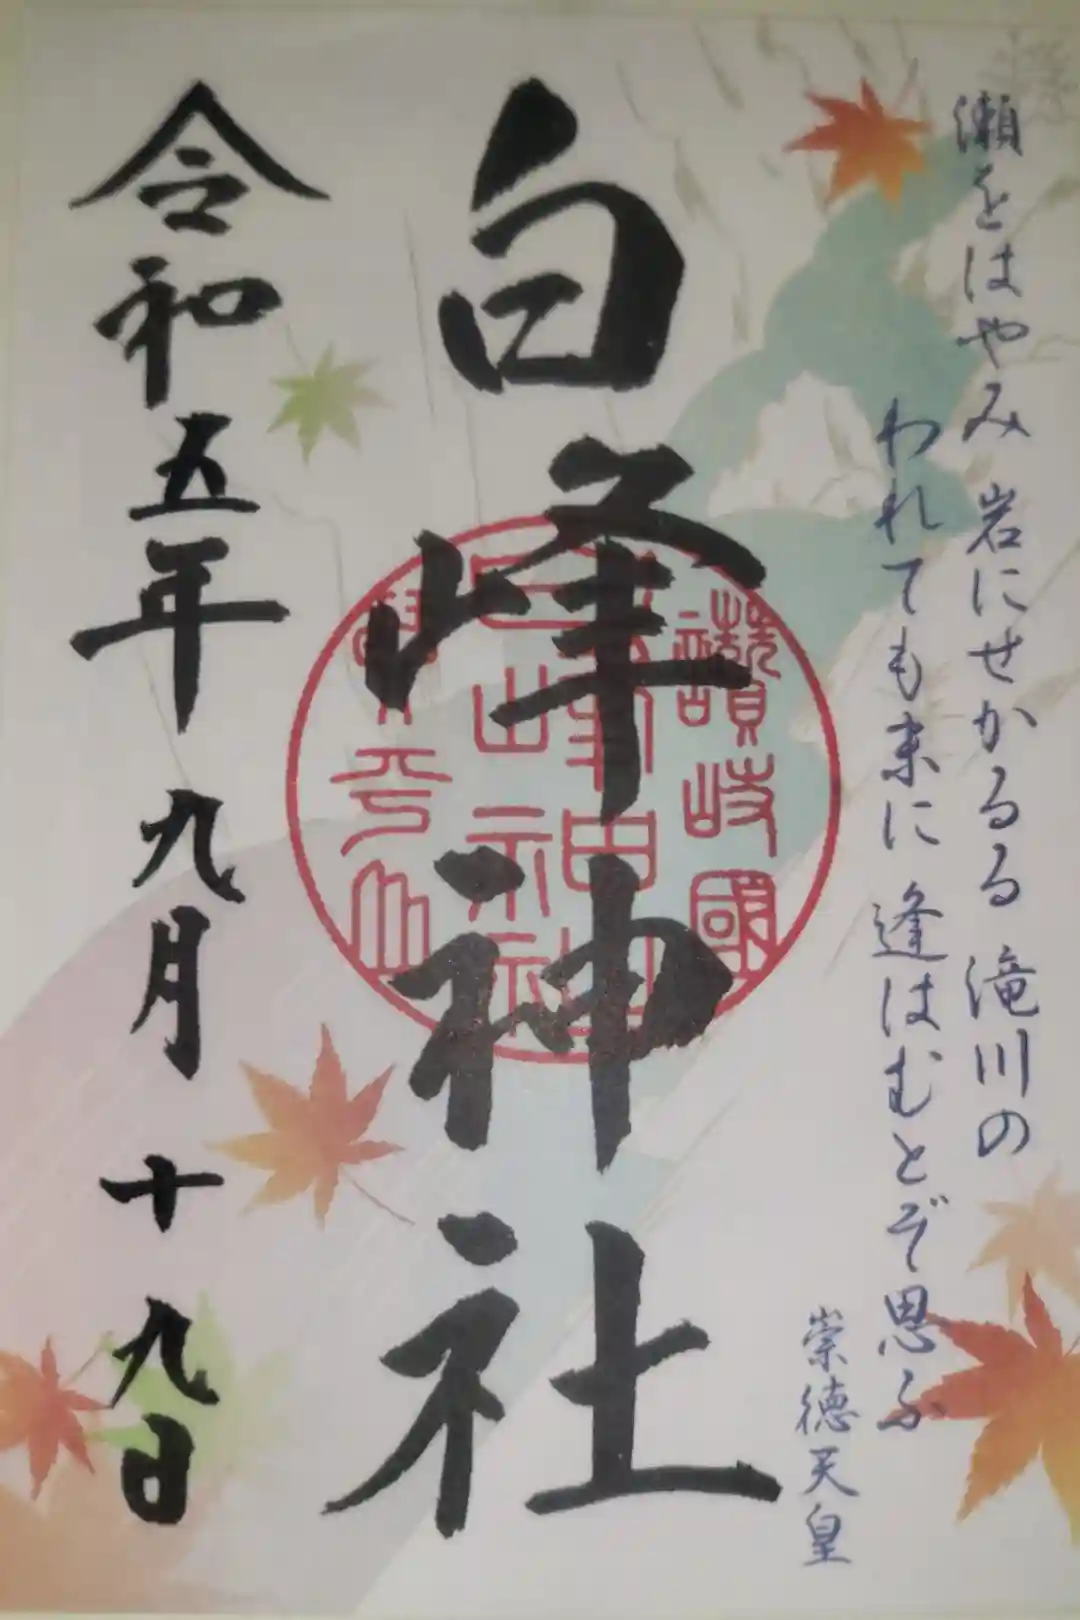 瀬をはやみ 岩にせかるる 滝川の
われても末に 逢はむとぞ思ふ
崇徳天皇
白峰神社
讃岐國
令和五年 九月 十九日